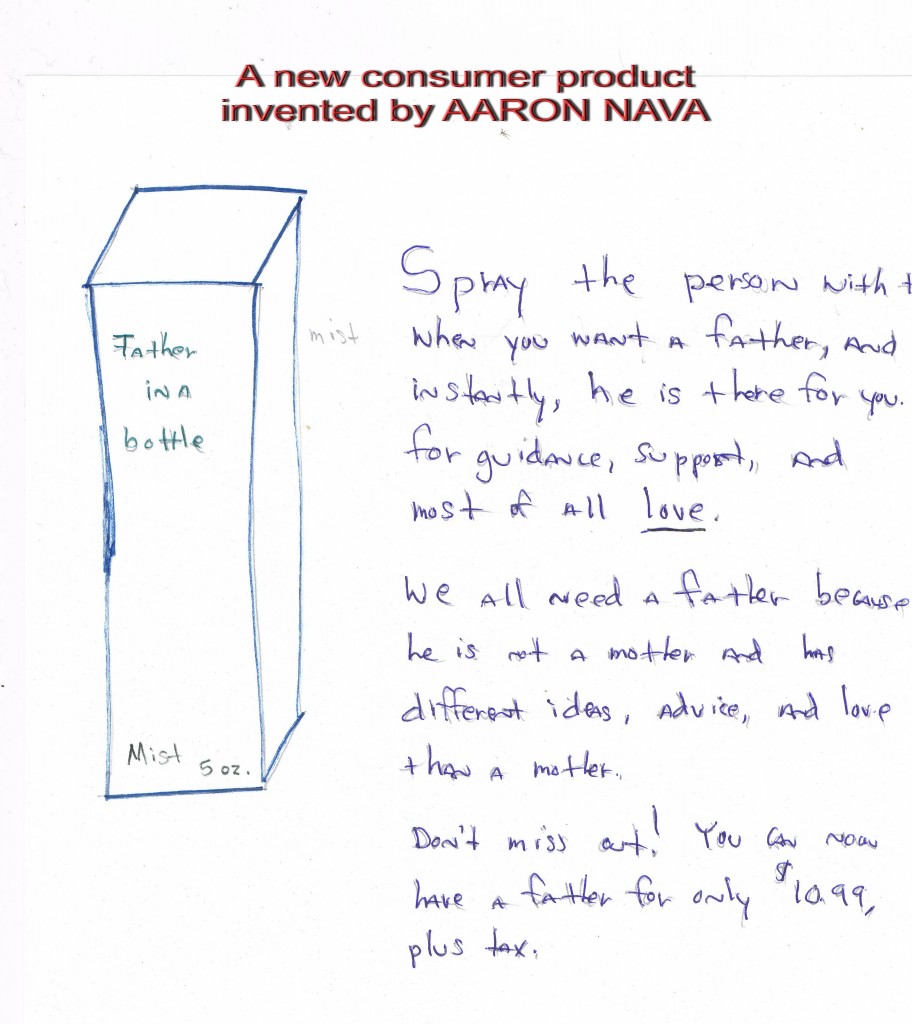 A new consumer product
invented by AARON NAVA
Father
in a
bottle
mist
Mist 5 oz.
Spray the person with
when you want a father, and
instantly, he is there for you.
for guidance, support, and
most of all love.
We all need a father because
he is not a mother and has
different ideas, advice, and love
than a mother.
Don't miss out! You can now
have a father for only $10.99,
plus tax.